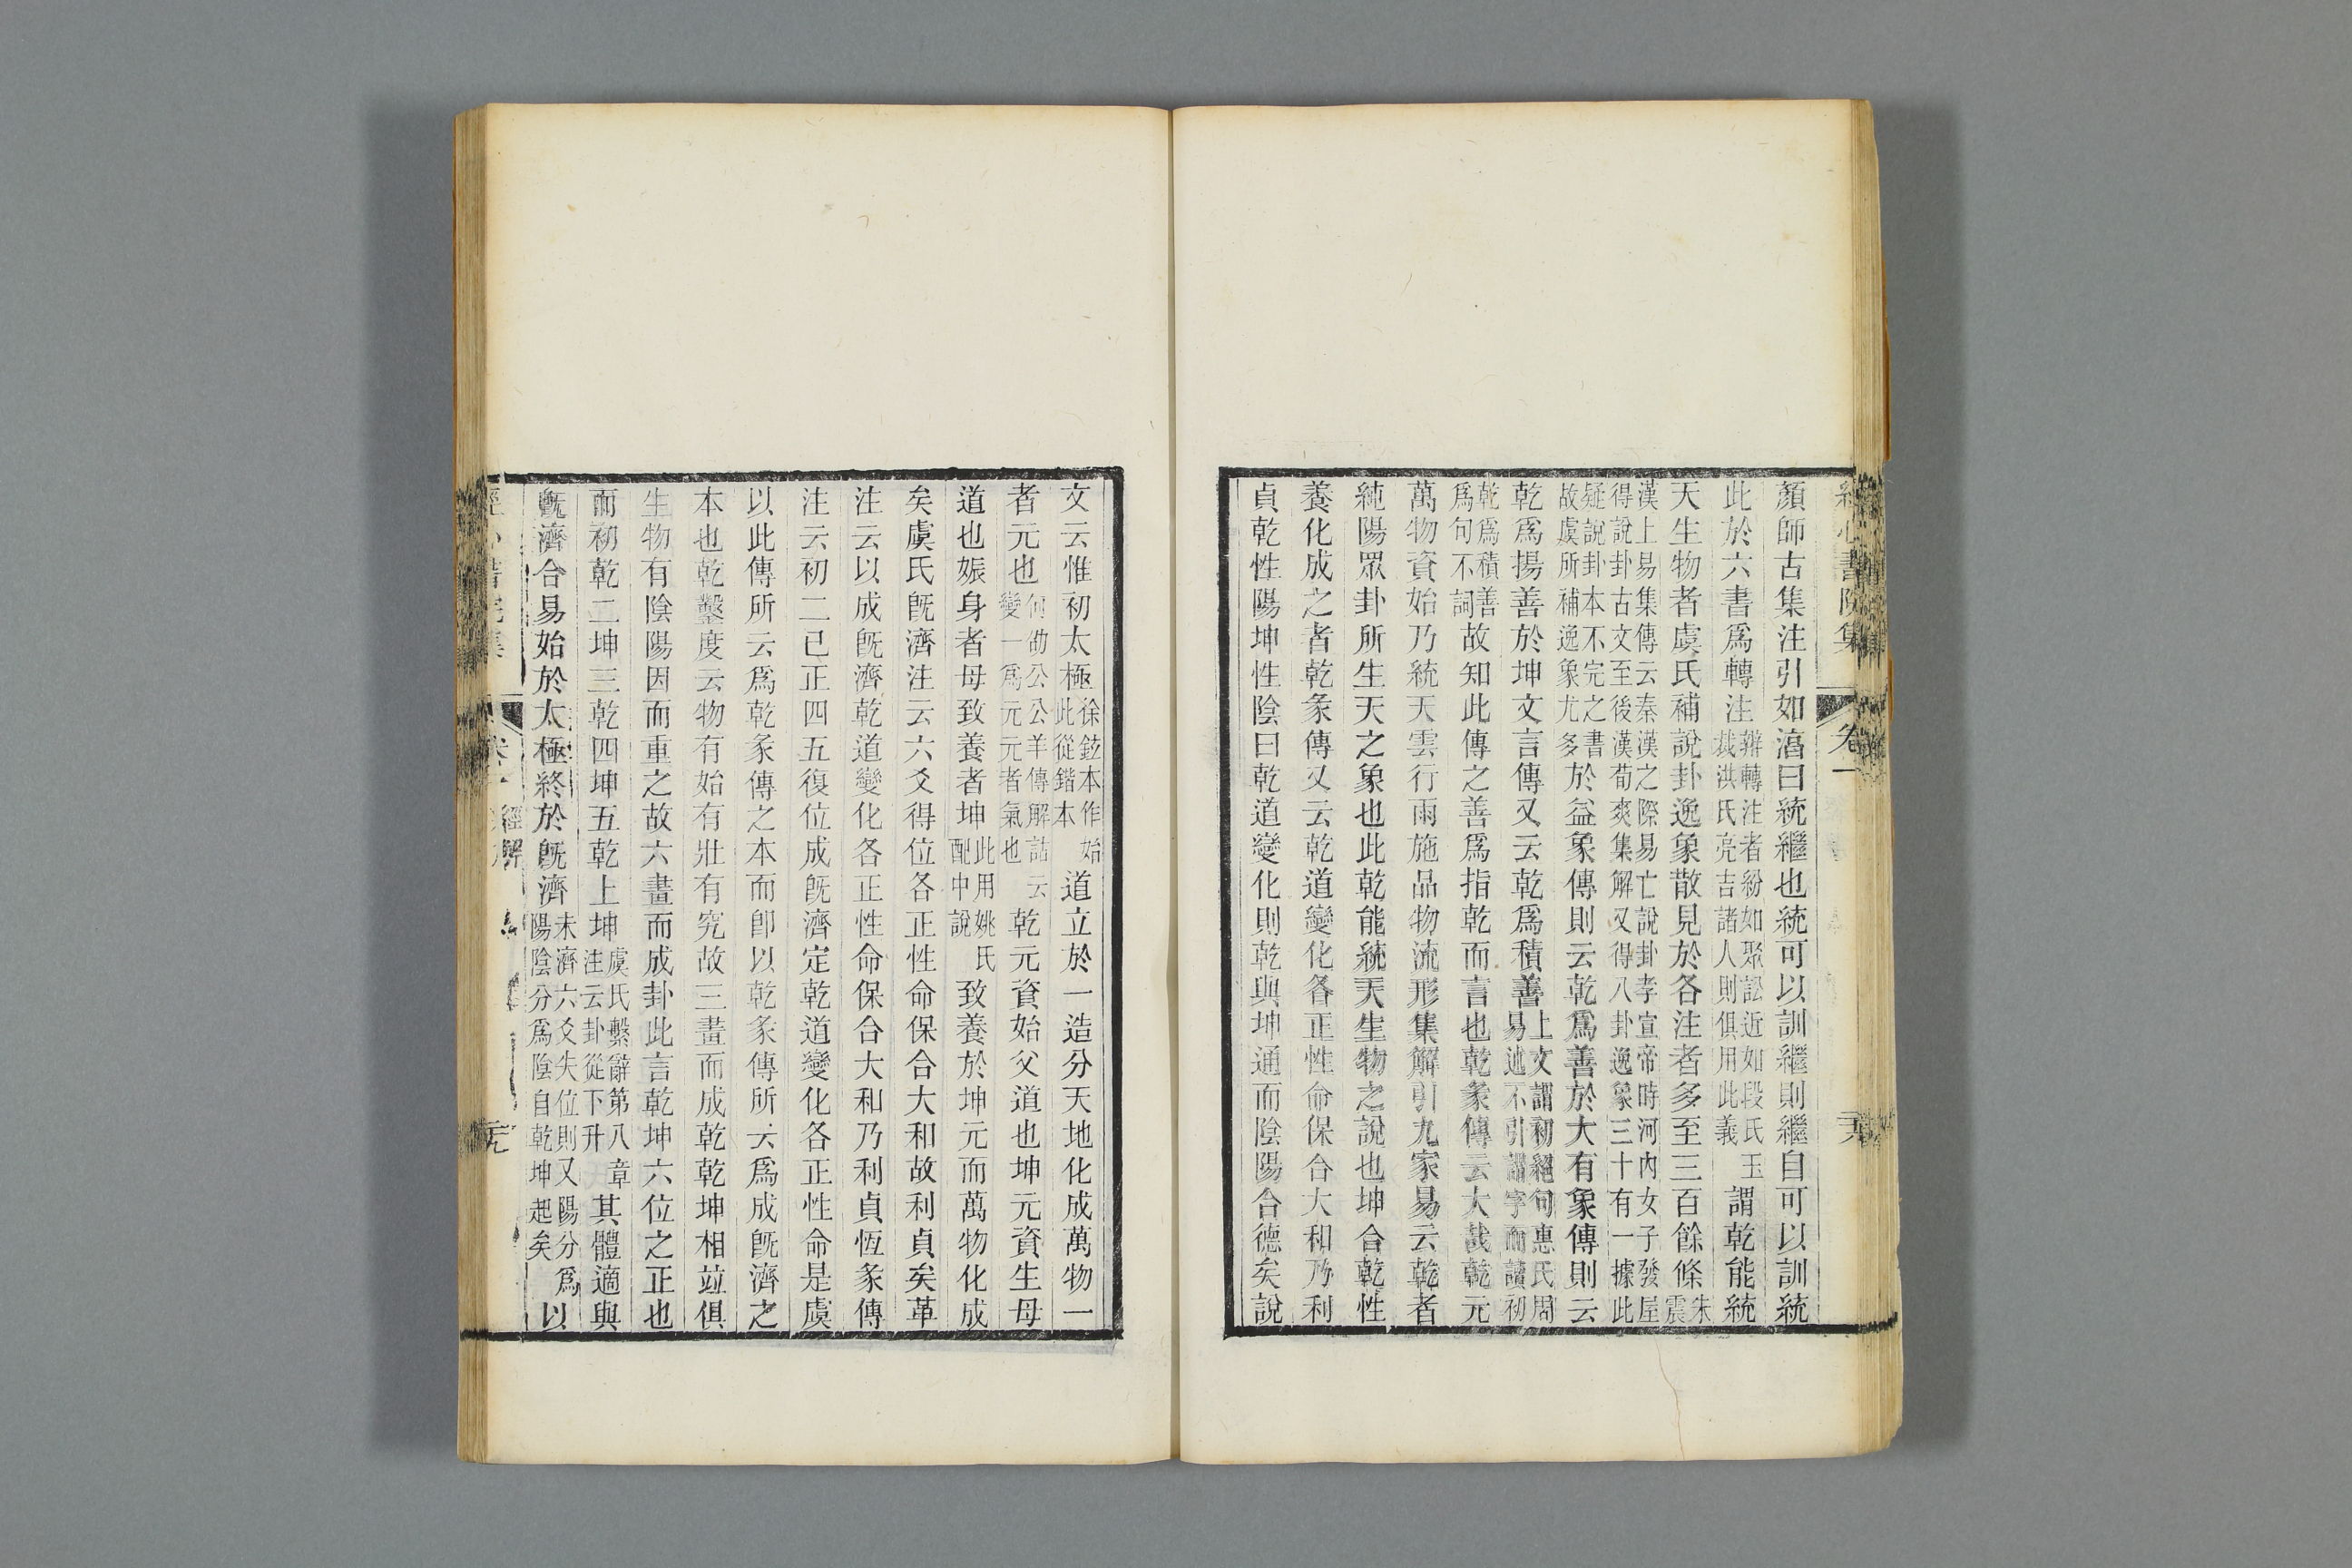 經心書院集 卷一
顏師古集注引如湻曰統繼也統可以訓繼則繼自可以訓統
此於六書爲轉注辨轉注者紛如聚訟近如段氏玉裁洪氏亮吉諸人則俱用此義謂乾能統
天生物者虞氏補說卦逸象散見於各注者多至三百餘條朱震
漢上易集傳云秦漢之際易亡說卦孝宣帝時河內女子發屋得說卦古文至後漢荀爽集解又得八卦逸象三十有一據此
疑說卦本不完之書故虞所補逸象尤多於益象傳則云乾爲善於大有象傳則云
乾爲揚善於坤文言傳又云乾爲積善上文謂初絕句惠氏周易述不引謂字而讀初
乾爲積善爲句不詞故知此傳之善爲指乾而言也乾彖傳云大哉乾元
萬物資始乃統天雲行雨施品物流形集解引九家易云乾者
純陽眾卦所生天之象也此乾能統天生物之說也坤合乾性
養化成之者乾彖傳又云乾道變化各正性命保合大和乃利
貞乾性陽坤性陰曰乾道變化則乾與坤通而陰陽合德矣說
文云惟初太極徐鉉本作始此從鍇本道立於一造分天地化成萬物一
者元也何劭公公羊傳解詁云變一爲元元者氣也乾元資始父道也坤元資生母
道也娠身者母致養者坤此用姚氏配中說致養於坤元而萬物化成
矣虞氏旣濟注云六爻得位各正性命保合大和故利貞矣革
注云以成旣濟乾道變化各正性命保合大和乃利貞恆彖傳
注云初二已正四五復位成旣濟定乾道變化各正性命是虞
以此傳所云爲乾彖傳之本而卽以乾彖傳所云爲成旣濟之
本也乾鑿度云物有始有壯有究故三畫而成乾乾坤相竝俱
生物有陰陽因而重之故六畫而成卦此言乾坤六位之正也
而初乾二坤三乾四坤五乾上坤虞氏繫辭第八章注云卦從下升其體適與
旣濟合易始於太極終於旣濟未濟六爻失位則又陽分爲陽陰分爲陰自乾坤起矣以
卷一 經解